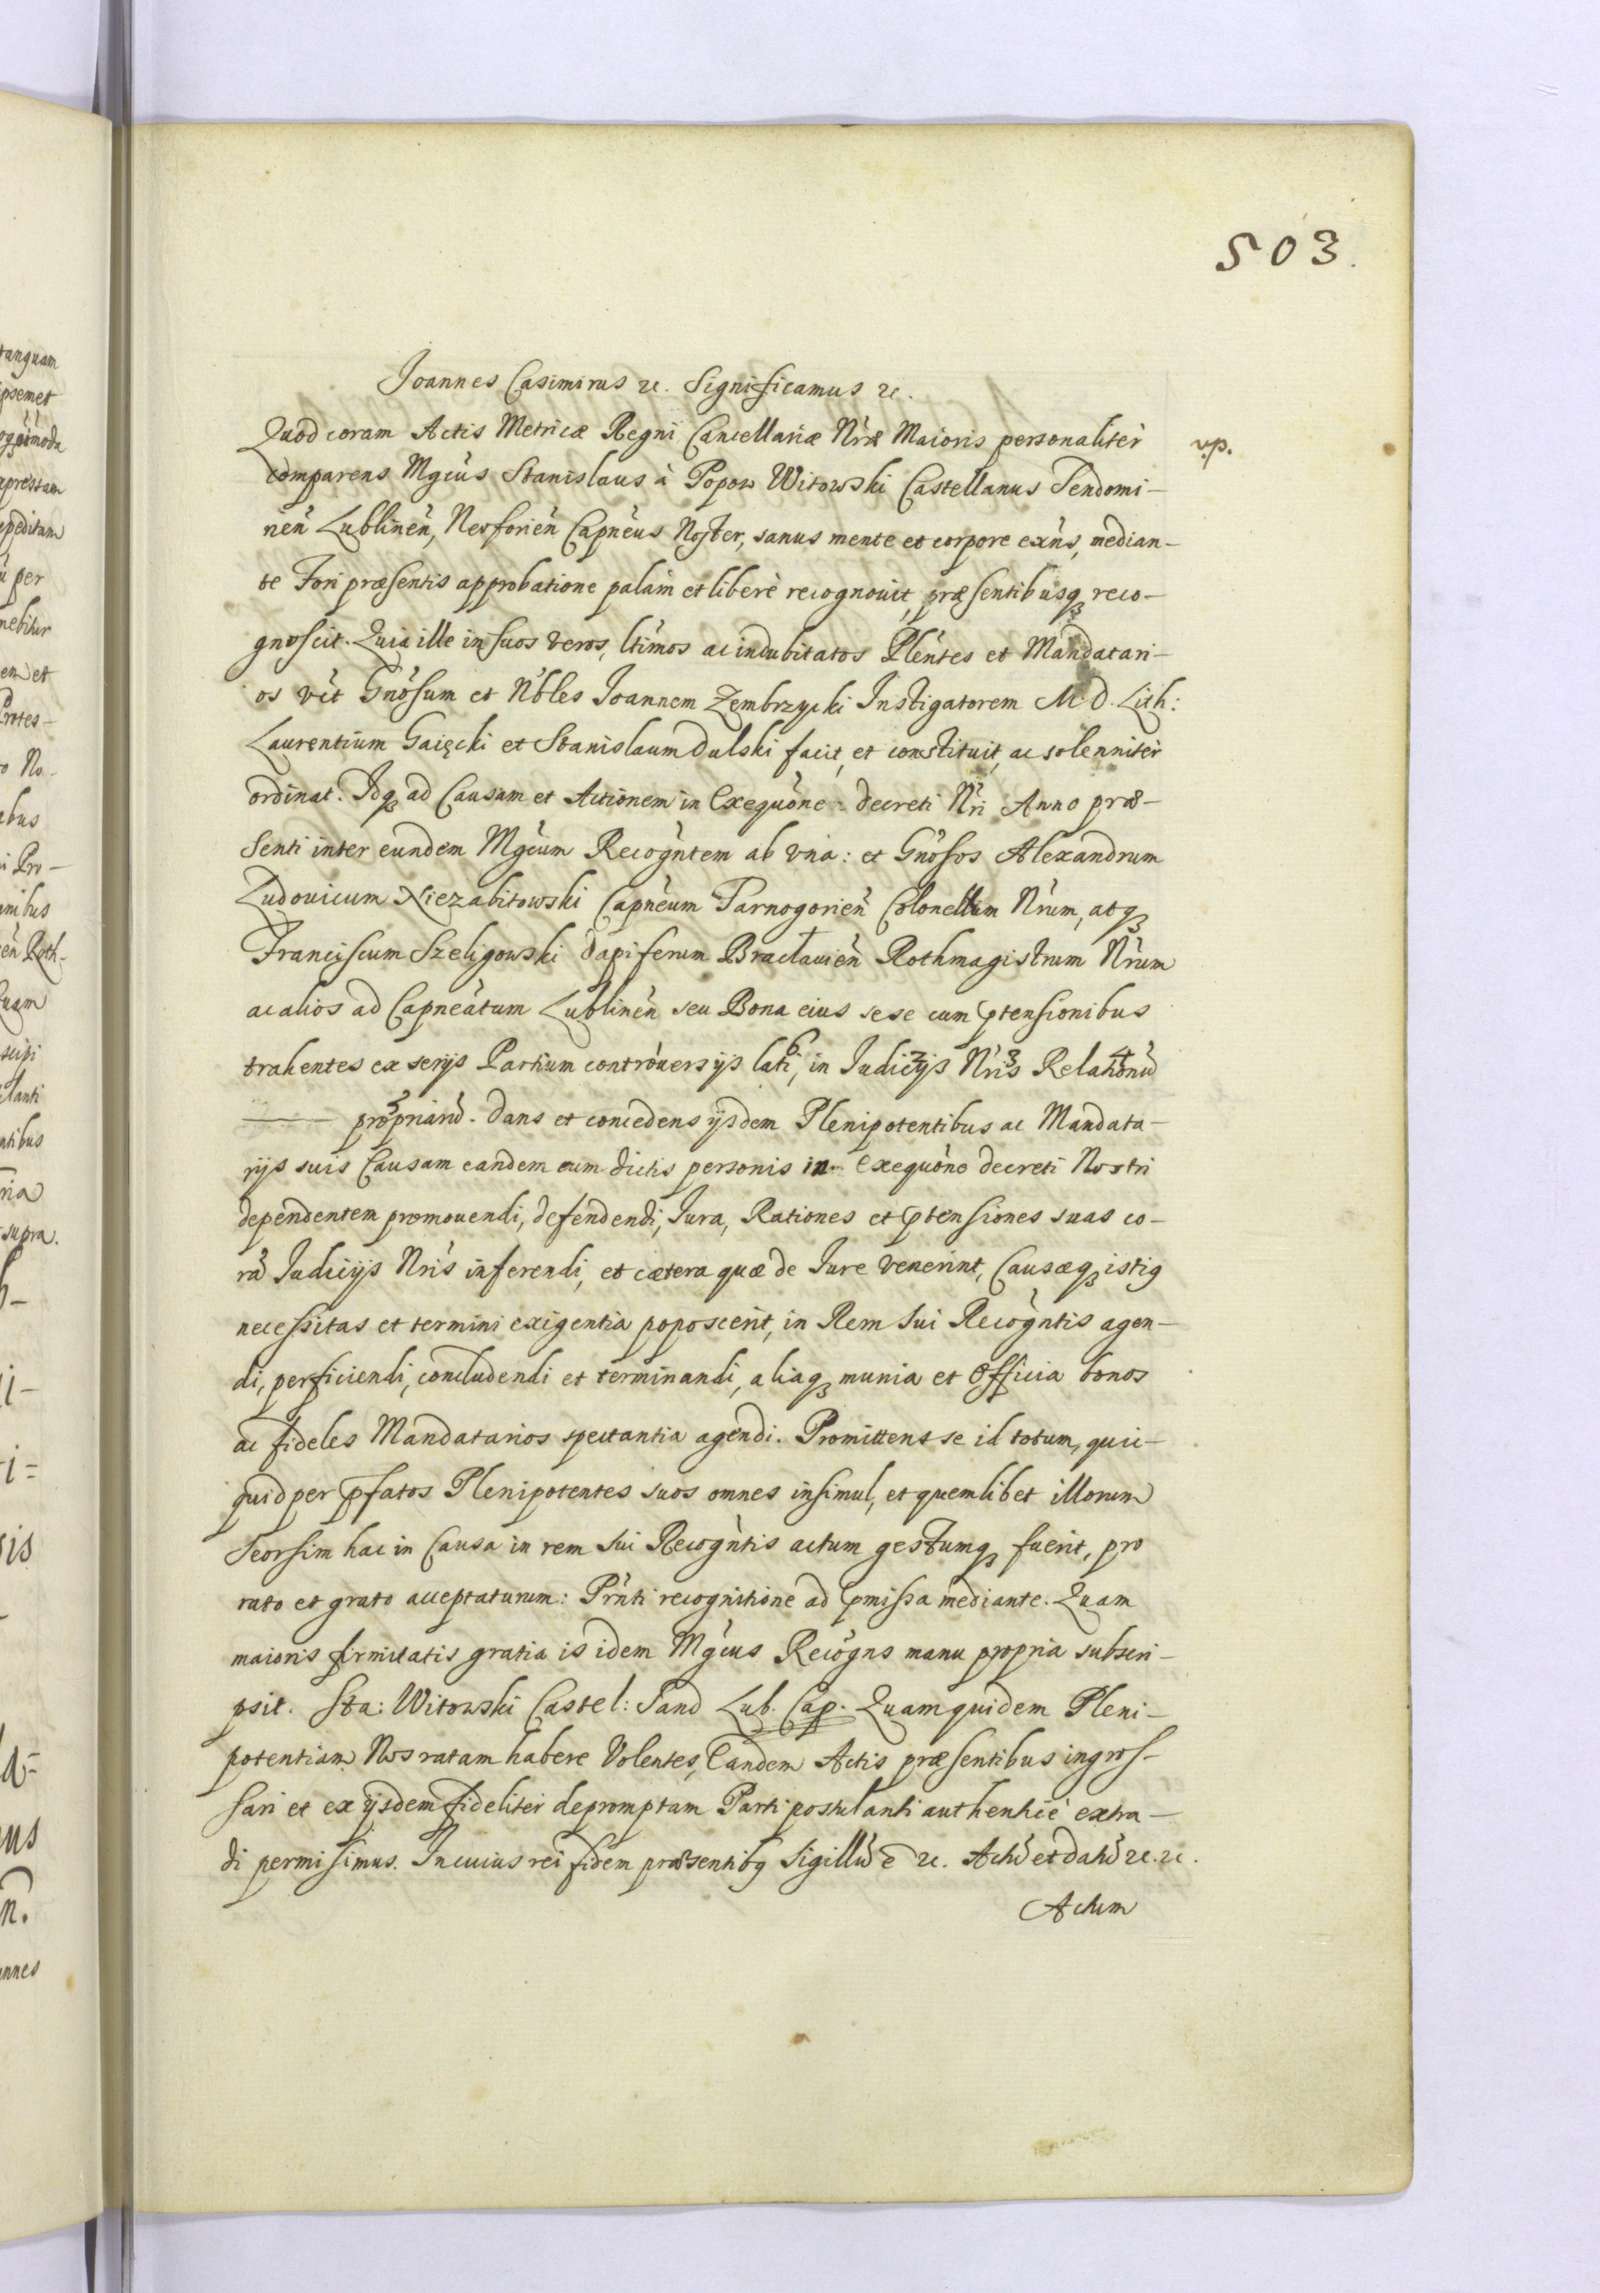 503.
Joannes Casimirus etc. Significamus etc.
Quod coram Actis Metricæ Regni Cancellariæ Nræ Maioris personaliter
v.p.
comparens Mgcus Stanislaus à Popow Witowski Castellanus Sendomi-
nen Lublinen, Neoforien Capneus Noster, sanus mente et corpore exns, median-
te Fori præsentis approbatione palam et liberè recognouit, præsentibusq reco-
gnoscit. Quia ille in suos veros, ltimos ac indubitatos Plentes et Mandatari-
os vti Gnosum et Nbles Joannem Zembrzycki Instigatorem M. D. Lith:
Laurentium Gaięcki et Stanislaum Dulski facit, et constituit, ac solenniter
ordinat. Idq ad Causam et Actionem in Exequone decreti Nri Anno præ-
senti inter eundem Mgcum Recogntem ab vna: et Gnosos Alexandrum
Ludouicum Niezabitowski Capneum Tarnogorien Colonellum Nrum, atq
Franciscum Szeligowski Dapiferum Bracłauien Rothmagistrum Nrum
ac alios ad Capneatum Lublinen seu Bona eius sese cum ptensionibus
trahentes ex serijs Partium controuersijs lati, in Judicijs Nris Relationu
propriaru. Dans et concedens ijsdem Plenipotentibus ac Mandata-
rijs suis Causam eandem cum dictis personis in Exequone decreti Nostri
dependentem promouendi, defendendi, Jura, Rationes et ptensiones suas co-
ra Judicijs Nris inferendi, et cætera quæ de Jure venerint, Causæq istig
necessitas et termini exigentia poposcerit, in Rem sui Recogntis agen-
di, perficiendi, concludendi et terminandi, aliaq munia et Officia bonos
ac fideles Mandatarios spectantia agendi. Promittens se id totum, quic-
quid per pfatos Plenipotentes suos omnes insimul, et quemlibet illorum
seorsim hac in Causa in rem sui Recogntis actum gestumq fuerit, pro
rato et grato acceptaturum: Prnti recognitione ad pmissa mediante. Quam
maioris firmitatis gratia is idem Mgcus Recogns manu propria subscri-
psit. Sta: Witowski Castel: Sand Lub. Cap. Quam quidem Pleni-
potentiam Nos ratam habere Volentes, Eandem Actis præsentibus ingros-
sari et ex ijsdem fideliter depromptam Parti postulanti authenticè extra-
di permisimus. In cuius rei fidem præsentibq Sigillu e etc. Actu et datu etc. etc.
Actum